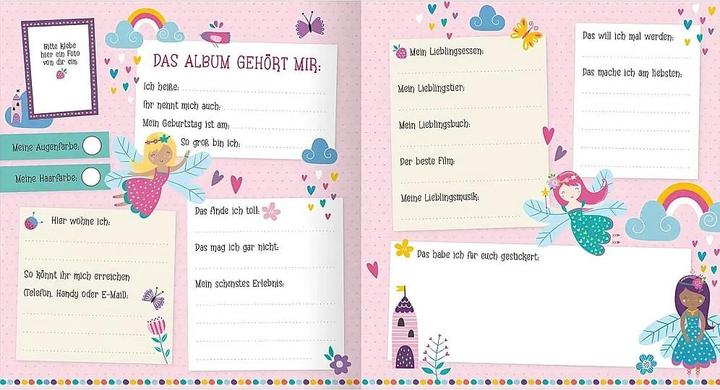 Bitte klebe
hier ein Foto
von dir ein.
DAS ALBUM GEHÖRT MIR:
Ich heiße:
Ihr nennt mich auch:
Mein Geburtstag ist am:
So groß bin ich:
Meine Augenfarbe:
Meine Haarfarbe:
Hier wohne ich:
So könnt ihr mich erreichen
(Telefon, Handy oder E-Mail):
Das finde ich toll:
Das mag ich gar nicht:
Mein schönstes Erlebnis:
Mein Lieblingsessen:
Mein Lieblingstier:
Mein Lieblingsbuch:
Der beste Film:
Meine Lieblingsmusik:
Das will ich mal werden:
Das mache ich am liebsten:
Das habe ich für euch gestickert: